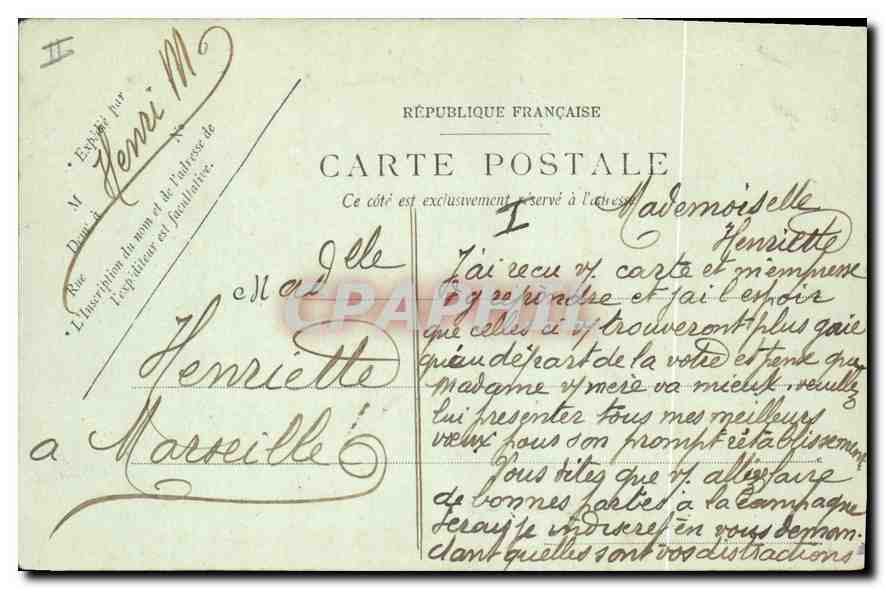 II
Expédié par
M Henri M
Demt à
Rue No
L'Inscription du nom et de l'adresse de
l'expéditeur est facultative.
RÉPUBLIQUE FRANÇAISE
CARTE POSTALE
Ce côté est exclusivement réservé à l'adresse
Madelle
Henriette
a Marseille
I
Mademoiselle
Henriette
J'ai recu v/ carte et m'empresse
d'y repondre et j'ai l'espoir
que celles ci v/ trouveront plus gaie
qu'au départ de la votre et pense que
Madame v/ mere va mieux. veuillez
lui presenter tous mes meilleurs
vœux pour son prompt rétablissement
Vous dites que v/ allez faire
de bonnes parties à la campagne
serais je indiscret en vous deman
dant quelles sont vos distractions
CPAPHIL